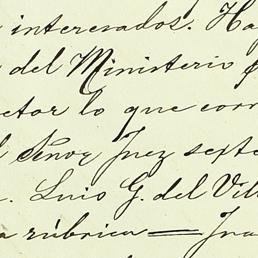 interesados. Ha
del Ministerio
ctor lo que corr
Señor Juez septe
. Luis G. del Vill
a rúbrica — Jua